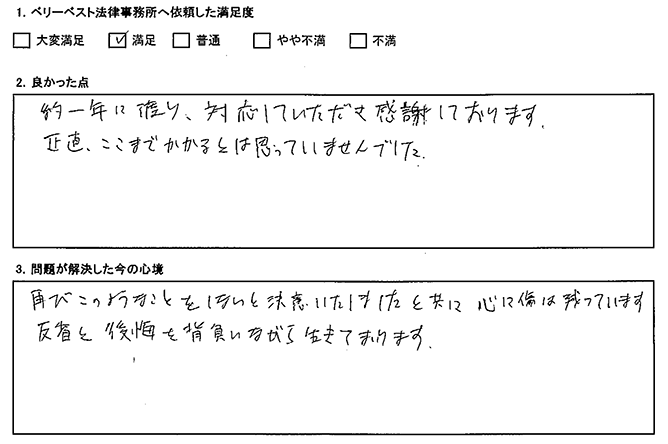 1. ベリーベスト法律事務所へ依頼した満足度
□ 大変満足 ☑ 満足 □ 普通 □ やや不満 □ 不満
2. 良かった点
約一年に渡り、対応していただき感謝しております。
正直、ここまでかかるとは思っていませんでした。
3. 問題が解決した今の心境
再びこのようなことをしないと決意いたしましたと共に 心に傷は残っています
反省と後悔を背負いながら生きております。